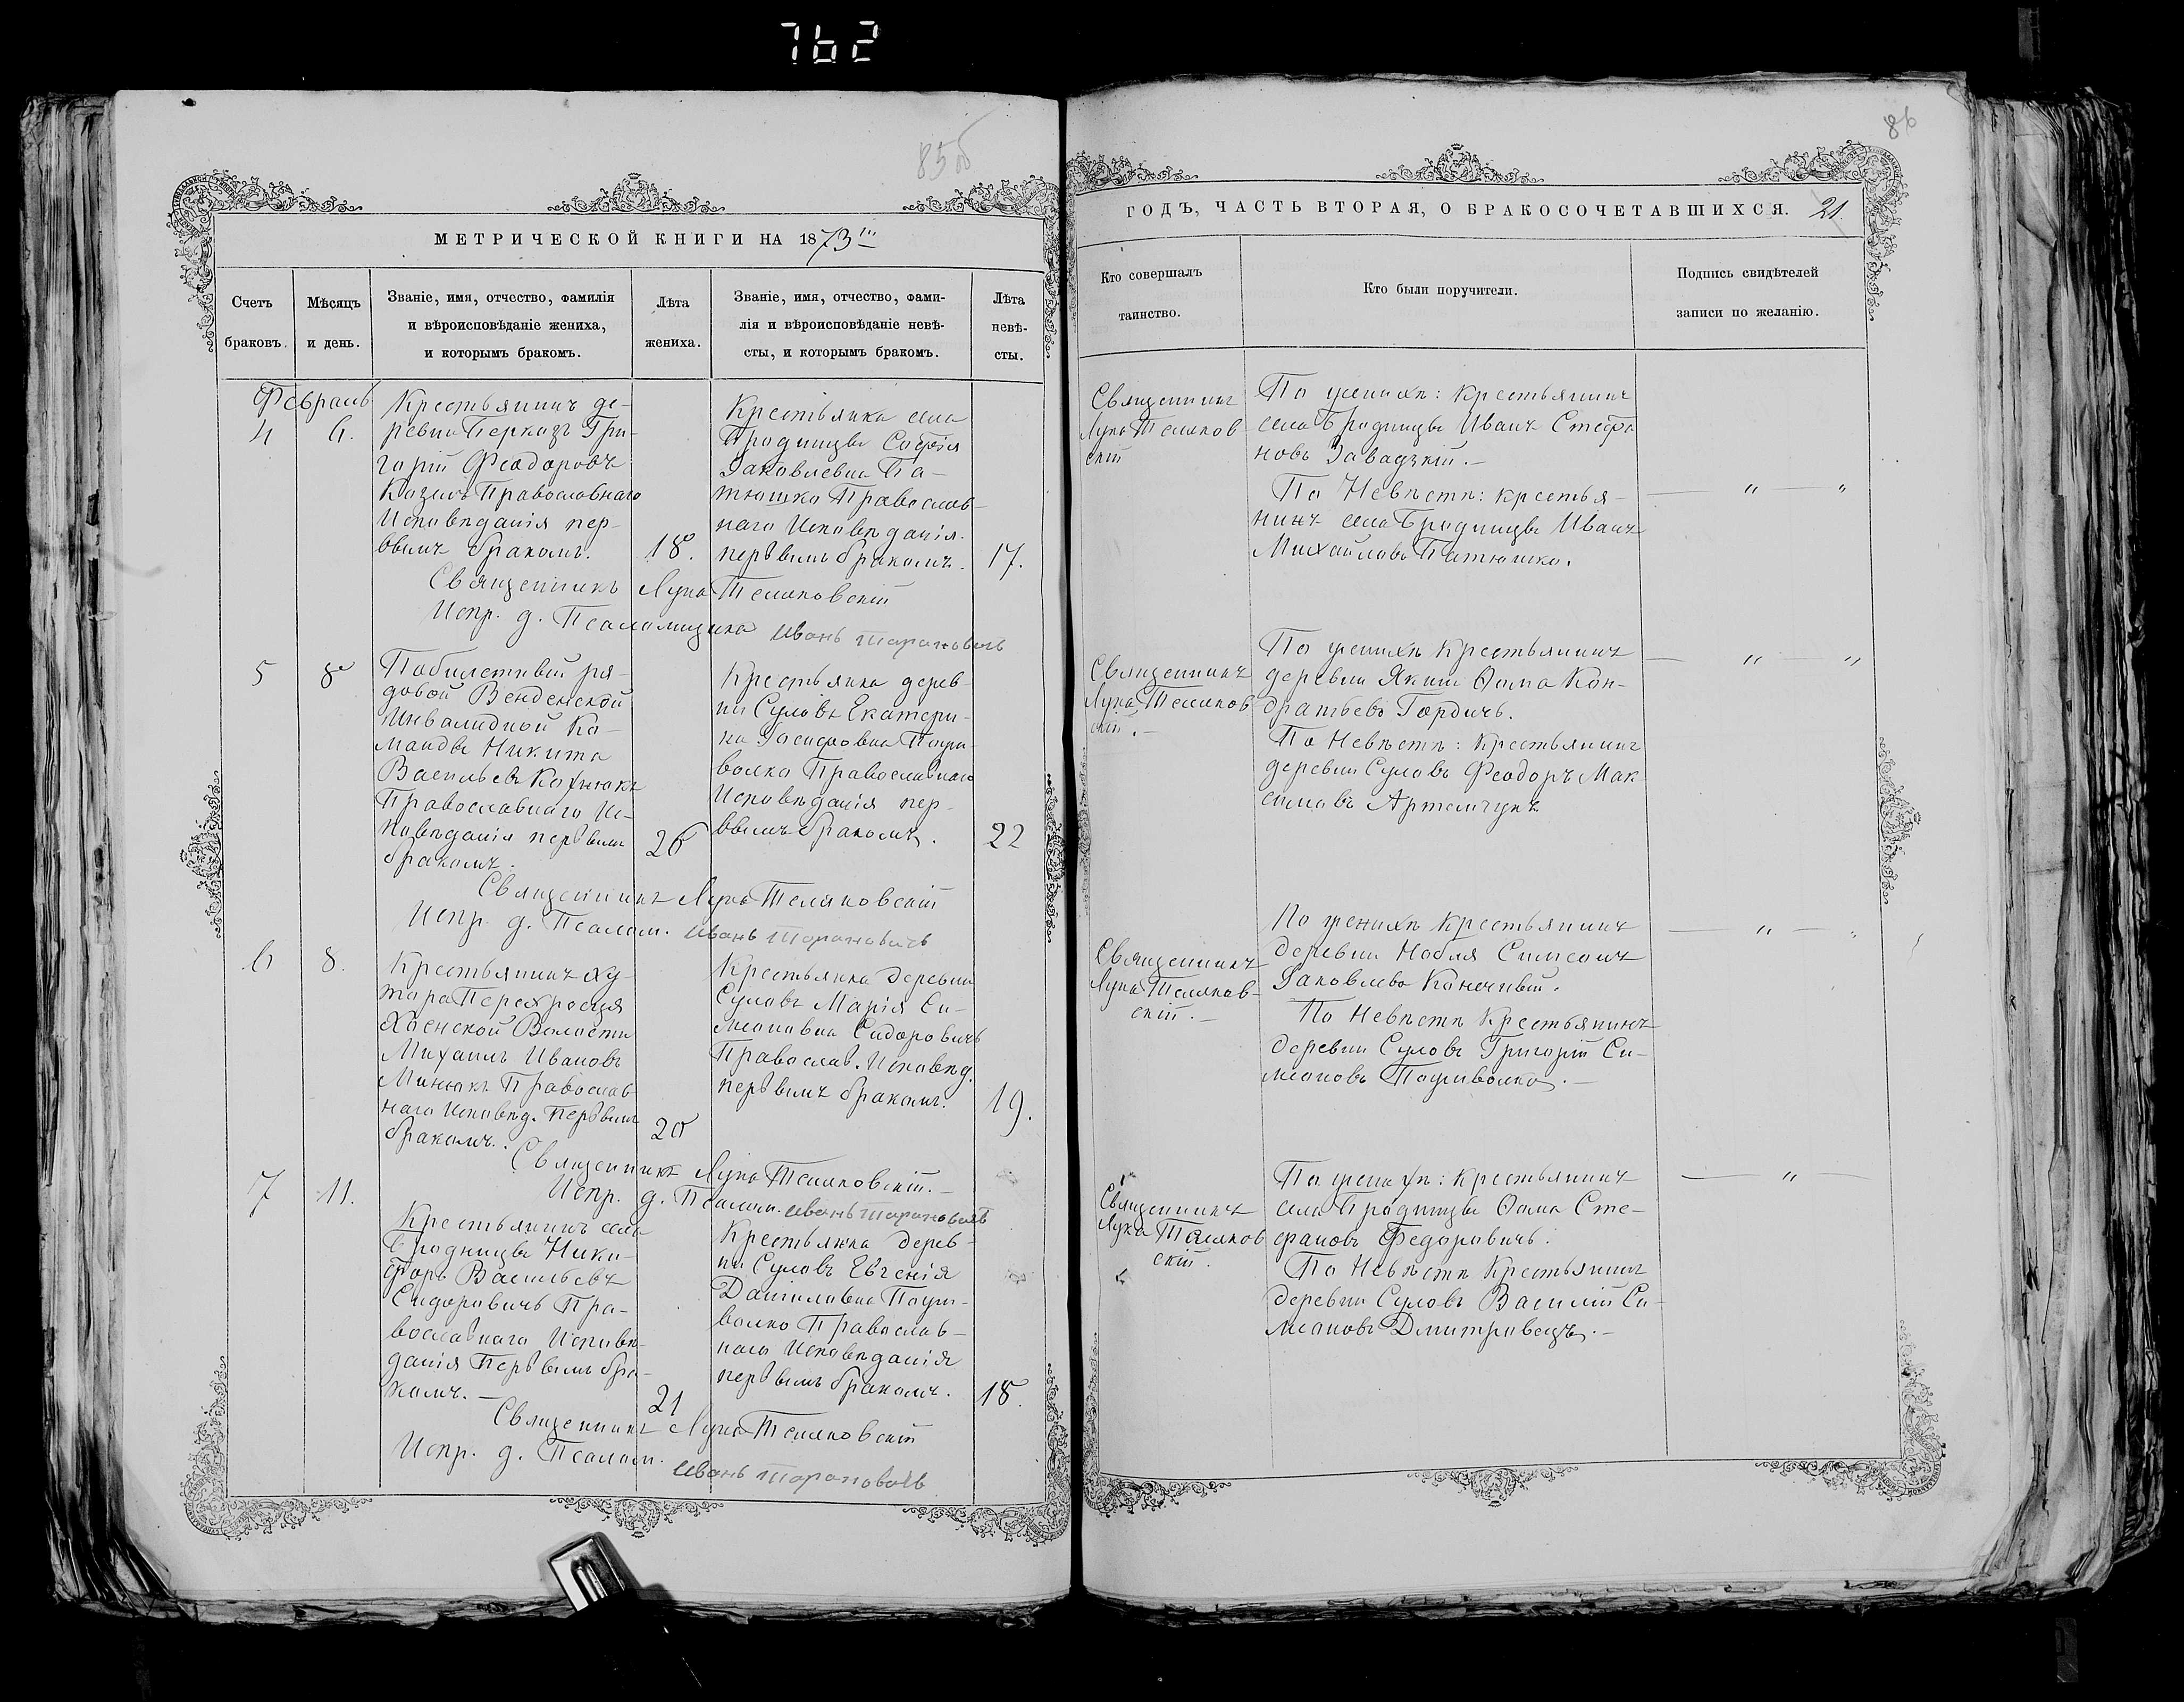 762
85об
МЕТРИЧЕСКОЙ КНИГИ НА 1873й
Счетъ
браковъ.
Мѣсяцъ
и день.
Званіе, имя, отчество, фамилія
и вѣроисповѣданіе жениха,
и которымъ бракомъ.
Лѣта
жениха.
Званіе, имя, отчество, фами-
лія и вѣроисповѣданіе невѣ-
сты, и которымъ бракомъ.
Лѣта
невѣ-
сты.
Февраль
4
6.
Крестьянинъ де-
ревни Перказъ Гри-
горій Феодоровъ
Козелъ Православнаго
Исповѣданія пер-
вымъ бракомъ.
18.
Крестьянка села
Бродницы Софія
Іаковлевна Па-
тюшко Православ-
наго Исповѣданія
первымъ бракомъ.
17.
Священникъ Лука Теляковскій
Испр. д. Псаломщика Иванъ Тарановичъ
5
8
Побилетный ря-
довой Венденской
Инвалидной Ко-
манды Никита
Васильевъ
Православнаго Ис-
повѣданія первымъ
бракомъ.
26
Крестьянка дерев-
ни Суловъ Екатери-
на Іосифовна Пори-
волко Православнаго
Исповѣданія пер-
вымъ бракомъ.
22
Священникъ Лука Теляковскій
Испр. д. Псалом. Иванъ Тарановичъ
6
8.
Крестьянинъ ху-
тора Перехресця
Хоенской Волости
Михаилъ Ивановъ
Минюкъ Православ
наго Исповѣд. Первымъ
бракомъ.
20
Крестьянка деревни
Суловъ Марія Си-
меоновна Сидоровичъ
Православ. Исповѣд.
первымъ бракомъ.
19.
Священникъ Лука Теляковскій.
Испр. д. Псалом. Иванъ Тарановичъ
7
11.
Крестьянинъ села
Бродницы Ники-
форъ Васильевъ
Сидоровичъ Пра-
вославнаго Исповѣ-
данія Первымъ бра-
комъ.
21
Крестьянка дерев-
ни Суловъ Евгенія
Даниловна Пори-
волко Православ-
наго Исповѣданія
первымъ бракомъ.
18.
Священникъ Лука Теляковскій
Испр. д. Псалом.
Иванъ Тарановичъ
86
ГОДЪ, ЧАСТЬ ВТОРАЯ, О БРАКОСОЧЕТАВШИХСЯ. 21.
Кто совершалъ
таинство.
Кто были поручители.
Подпись свидѣтелей
записи по желанію.
Священникъ
Лука Теляков
скій
По женихѣ: Крестьянинъ
села Бродницы Иванъ Стефа
новъ Завадзкій.
По Невѣстѣ: крестья-
нинъ села Бродницы Иванъ
Михайловъ Патюшко.
— " — "
Священникъ
Лука Теляков
скій.
По женихѣ Крестьянинъ
деревни Якши Ѳома Кон-
дратьевъ Гордичъ.
По Невѣстѣ: Крестьянинъ
деревни Суловъ Феодоръ Мак-
симовъ Артемчукъ
— " — "
Священникъ
Лука Теляков-
скій.
По женихѣ Крестьянинъ
деревни Нобля Симеонъ
Іаковлевъ Конечный.
По Невѣстѣ Крестьянинъ
деревни Суловъ Григорій Си-
меоновъ Пориволко.
— " — "
Священникъ
Лука Теляков
скій.
По женихѣ: Крестьянинъ
села Бродницы Ѳома Сте-
фановъ Федоровичъ.
По Невѣстѣ Крестьянинъ
деревни Суловъ Василій Си-
меоновъ Дмитровецъ.
— " —